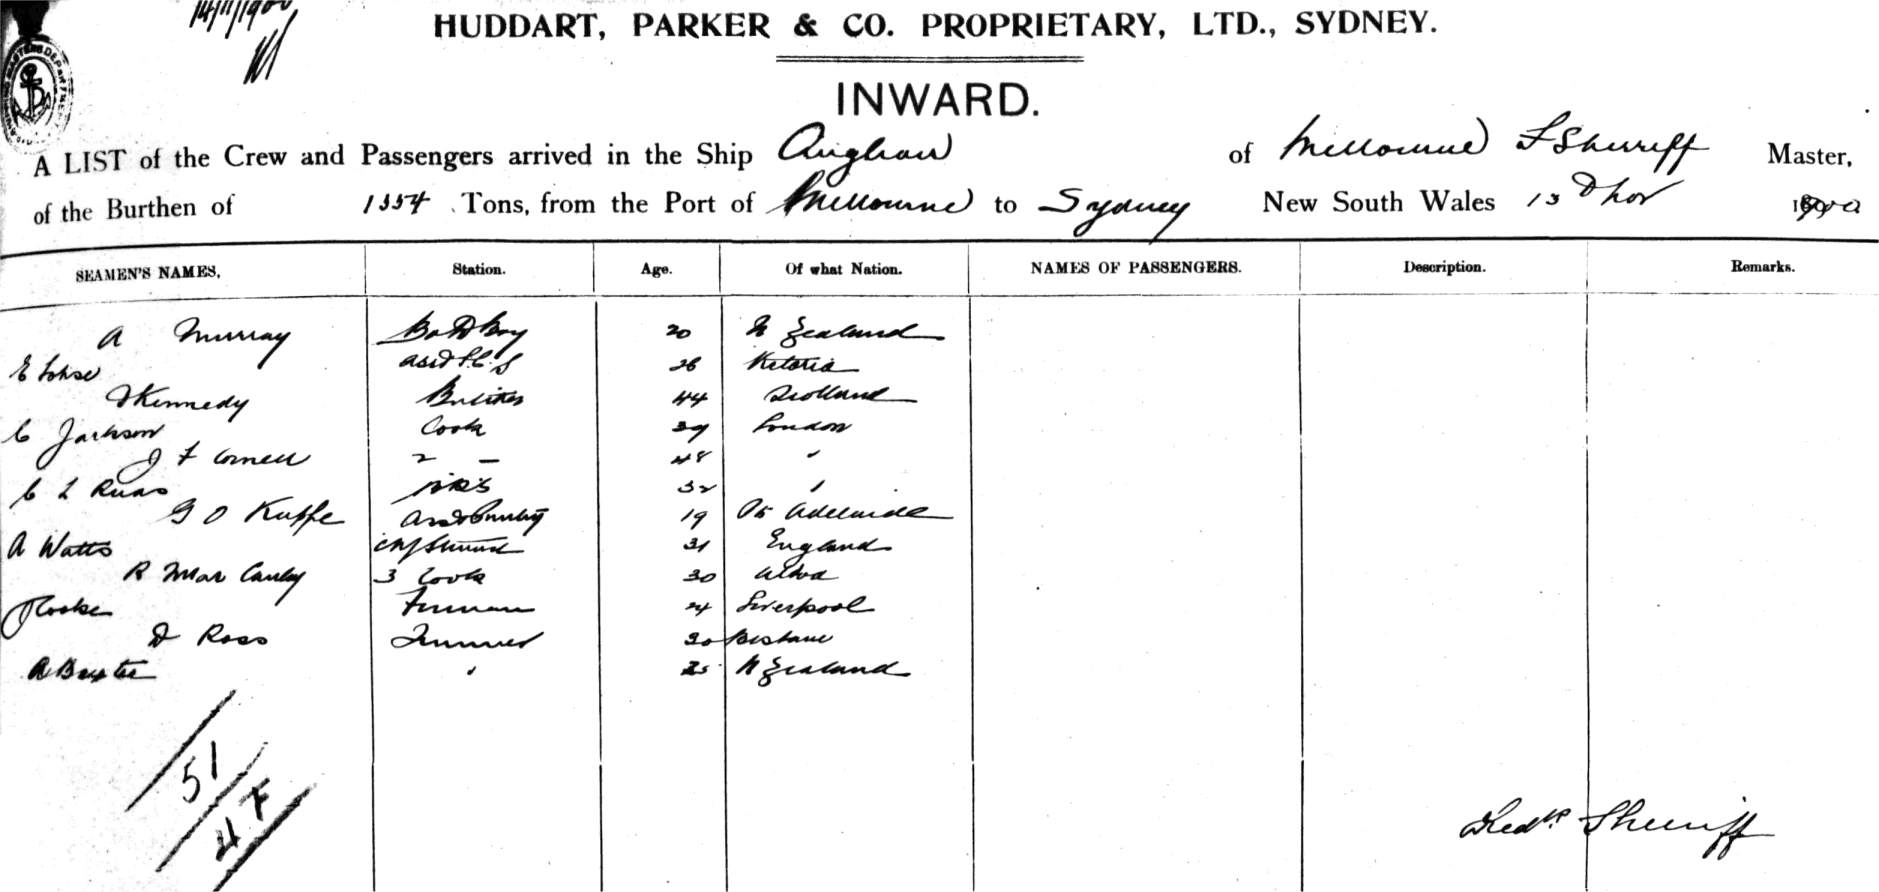 14/11/1900
HUDDART, PARKER & CO. PROPRIETARY, LTD., SYDNEY.
INWARD.
A LIST of the Crew and Passengers arrived in the Ship Anglian of Melbourne F Sherriff Master,
of the Burthen of 1354 Tons, from the Port of Melbourne to Sydney New South Wales 13 Nov 1900
SEAMEN'S NAMES, Station. Age. Of what Nation. NAMES OF PASSENGERS. Description. Remarks.
A Murray 20 N Zealand
E Lohse 26 Victoria
Kennedy 44 Scotland
C Jackson Cook 39 London
J F Cornell 2 — 48 "
C L 32 "
G O 19 Pt Adelaide
A Watts 31 England
R Mac Cauley 3 Cook 30
Fireman 24 Liverpool
D Ross Trimmer 30 Brisbane
A Baxter " 25 N Zealand
51
47
Fredk Sherriff